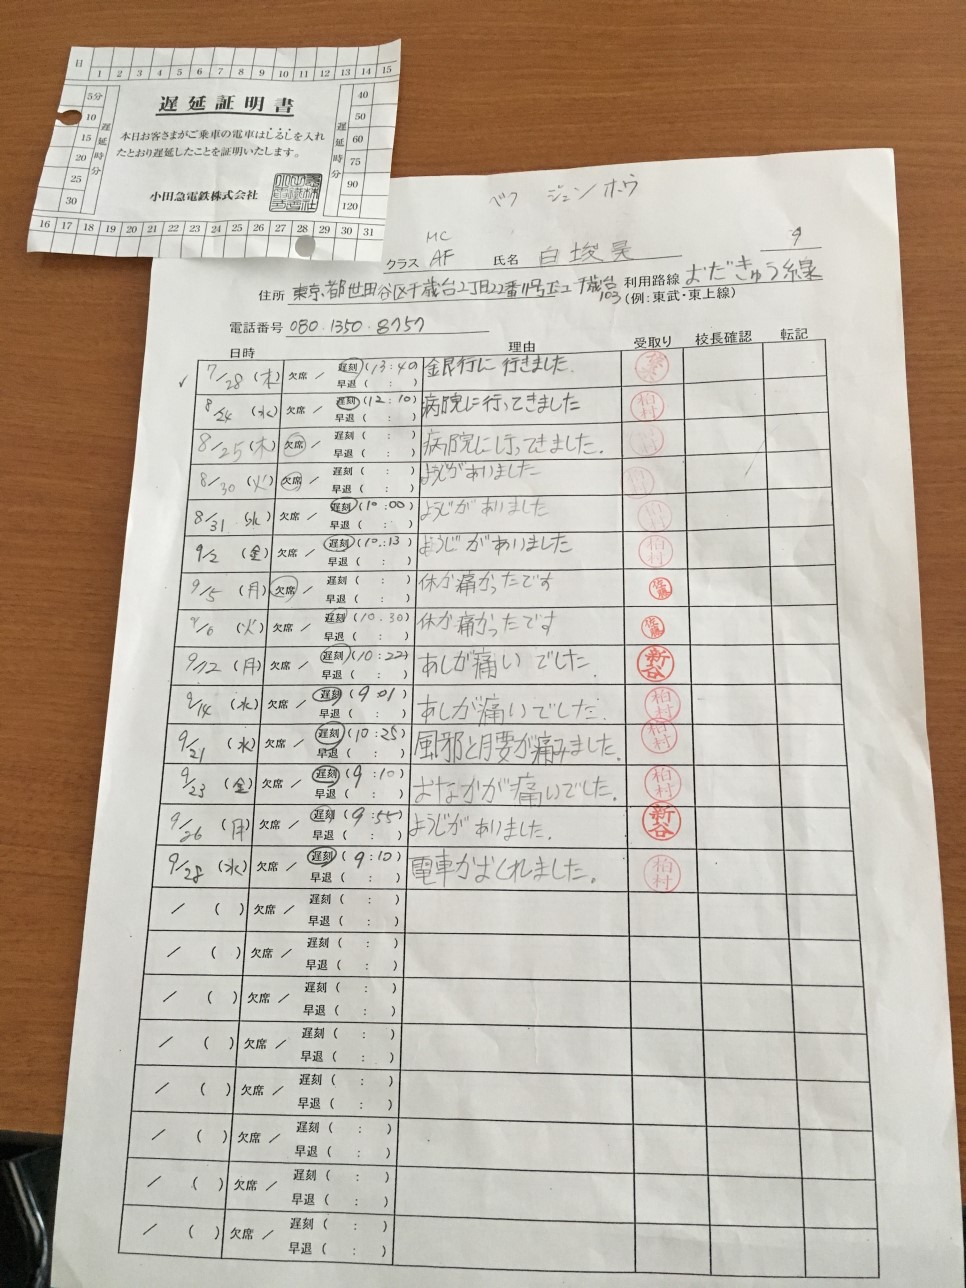 日 1 2 3 4 5 6 7 8 9 10 11 12 13 14 15
5分 10 15 20 25 30
遅延時分
遅延証明書
本日お客さまがご乗車の電車はしるしを入れ
たとおり遅延したことを証明いたします。
小田急電鉄株式会社
遅延時分
40 50 60 75 90 120
16 17 18 19 20 21 22 23 24 25 26 27 28 29 30 31
ベク ジュンホウ
MC
9
クラス AF 氏名 白埈昊
住所 東京都世田谷区千歳台2丁目22番11号 千歳台 103
利用路線 おだきゅう線
(例:東武・東上線)
電話番号 080.1350.8757
日時 理由 受取り 校長確認 転記
✓ 7/28 (木) 欠席 / 遅刻 (13:40) 早退 ( : ) 金艮行に行きました.
8/24 (水) 欠席 / 遅刻 (12:10) 早退 ( : ) 病院に行ってきました 柏村
8/25 (木) 欠席 / 遅刻 ( : ) 早退 ( : ) 病院に行ってきました.
8/30 (火) 欠席 / 遅刻 ( : ) 早退 ( : ) ようじがありました
8/31 (水) 欠席 / 遅刻 (10:00) 早退 ( : ) ようじがありました 柏村
9/2 (金) 欠席 / 遅刻 (10:13) 早退 ( : ) ようじがありました 柏村
9/5 (月) 欠席 / 遅刻 ( : ) 早退 ( : ) 休が痛かったです 佐藤
9/6 (火) 欠席 / 遅刻 (10:30) 早退 ( : ) 休が痛かったです 佐藤
9/12 (月) 欠席 / 遅刻 (10:22) 早退 ( : ) あしが痛いでした. 新谷
9/14 (水) 欠席 / 遅刻 (9:01) 早退 ( : ) あしが痛いでした. 柏村
9/21 (水) 欠席 / 遅刻 (10:25) 早退 ( : ) 風邪と腰が痛みました. 柏村
9/23 (金) 欠席 / 遅刻 (9:10) 早退 ( : ) おなかが痛いでした. 柏村
9/26 (月) 欠席 / 遅刻 (9:55) 早退 ( : ) ようじがありました. 新谷
9/28 (水) 欠席 / 遅刻 (9:10) 早退 ( : ) 電車がおくれました. 柏村
/ ( ) 欠席 / 遅刻 ( : ) 早退 ( : )
/ ( ) 欠席 / 遅刻 ( : ) 早退 ( : )
/ ( ) 欠席 / 遅刻 ( : ) 早退 ( : )
/ ( ) 欠席 / 遅刻 ( : ) 早退 ( : )
/ ( ) 欠席 / 遅刻 ( : ) 早退 ( : )
/ ( ) 欠席 / 遅刻 ( : ) 早退 ( : )
/ ( ) 欠席 / 遅刻 ( : ) 早退 ( : )
/ ( ) 欠席 / 遅刻 ( : ) 早退 ( : )